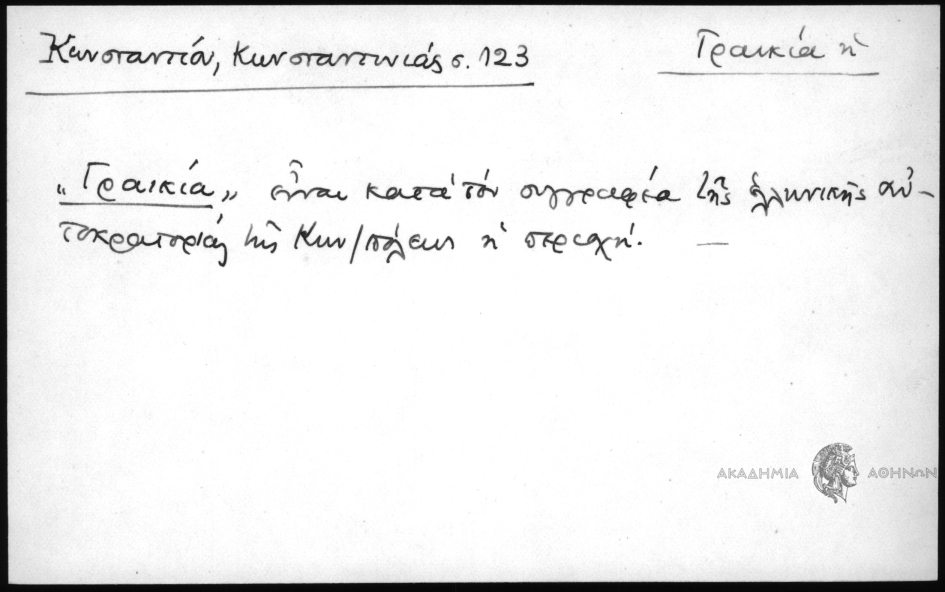 Κωνσταντίου, Κωνσταντινιάς σ. 123
Γραικία ἡ
„Γραικία„ εἶναι κατὰ τὸν συγγραφέα τῆς ἑλληνικῆς αὐ-
τοκρατορίας τῆς Κων/πόλεως ἡ περιοχή. —
ΑΚΑΔΗΜΙΑ ΑΘΗΝΩΝ